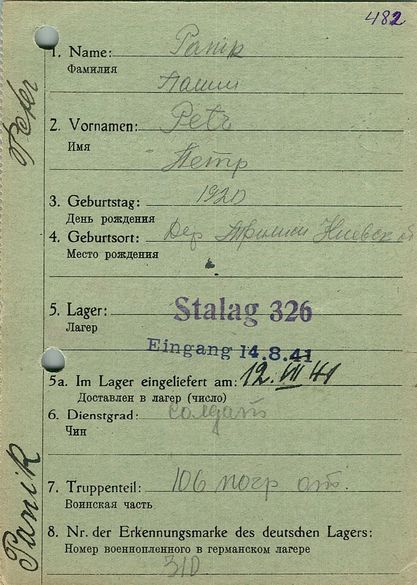 482
1. Name: Panik
Фамилия
Паник
2. Vornamen: Petr
Имя
Петр
3. Geburtstag: 1920
День рождения
4. Geburtsort: Дер
Место рождения
5. Lager: Stalag 326
Лагерь
Eingang 14.8.41
5a. Im Lager eingeliefert am: 12. VII 41
Доставлен в лагер (число)
6. Dienstgrad: солдат
Чин
7. Truppenteil: 106 погр
Воинская часть
8. Nr. der Erkennungsmarke des deutschen Lagers:
Номер военнопленного в германском лагере
Peter
Panik